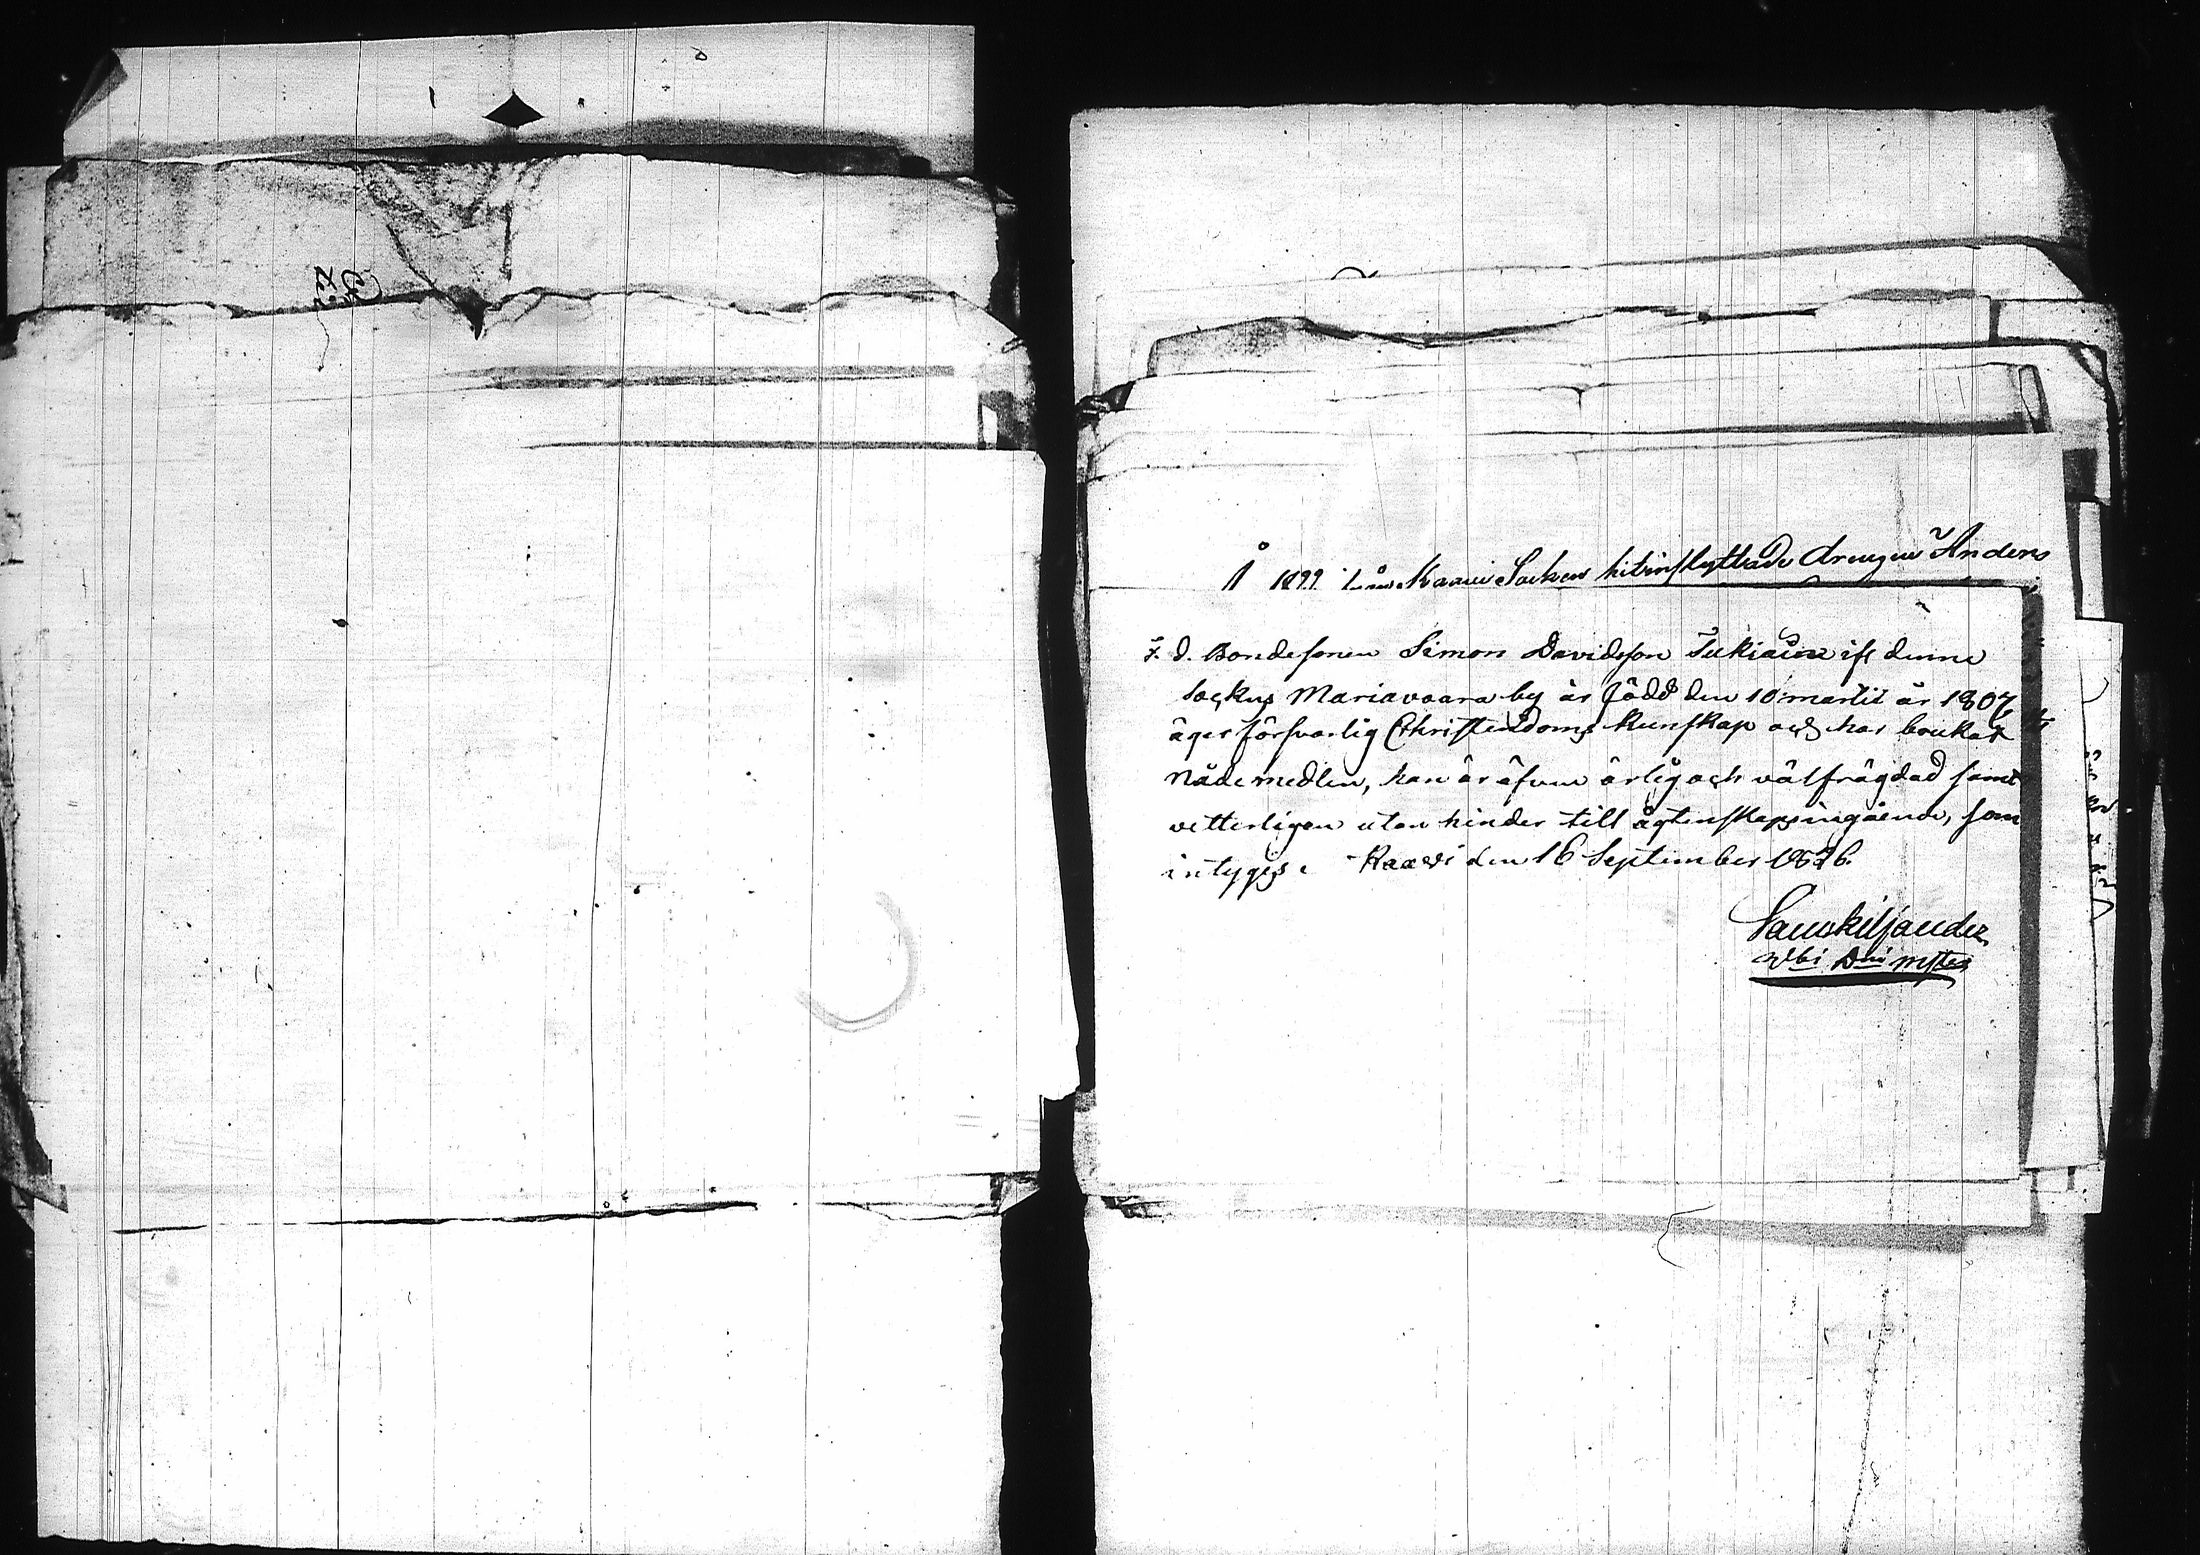 Å 1822 ifrån Kaavi Socken hitinflyttade drengen Anders
F. d. Bondesonen Simon Davidsson Tukiain ifr denne
Sockns Mariavaara by är född den 10 martii år 1807
äger försvarlig Christendoms kunskap och har brukat
nådemedlen, han är äfven ärlig och välfrägdad samt
vetterligen utan hinder till ägtenskaps ingående, som
intygas. Kaavi den 16 September 1826.
Kiljander
Vbi Dni mster